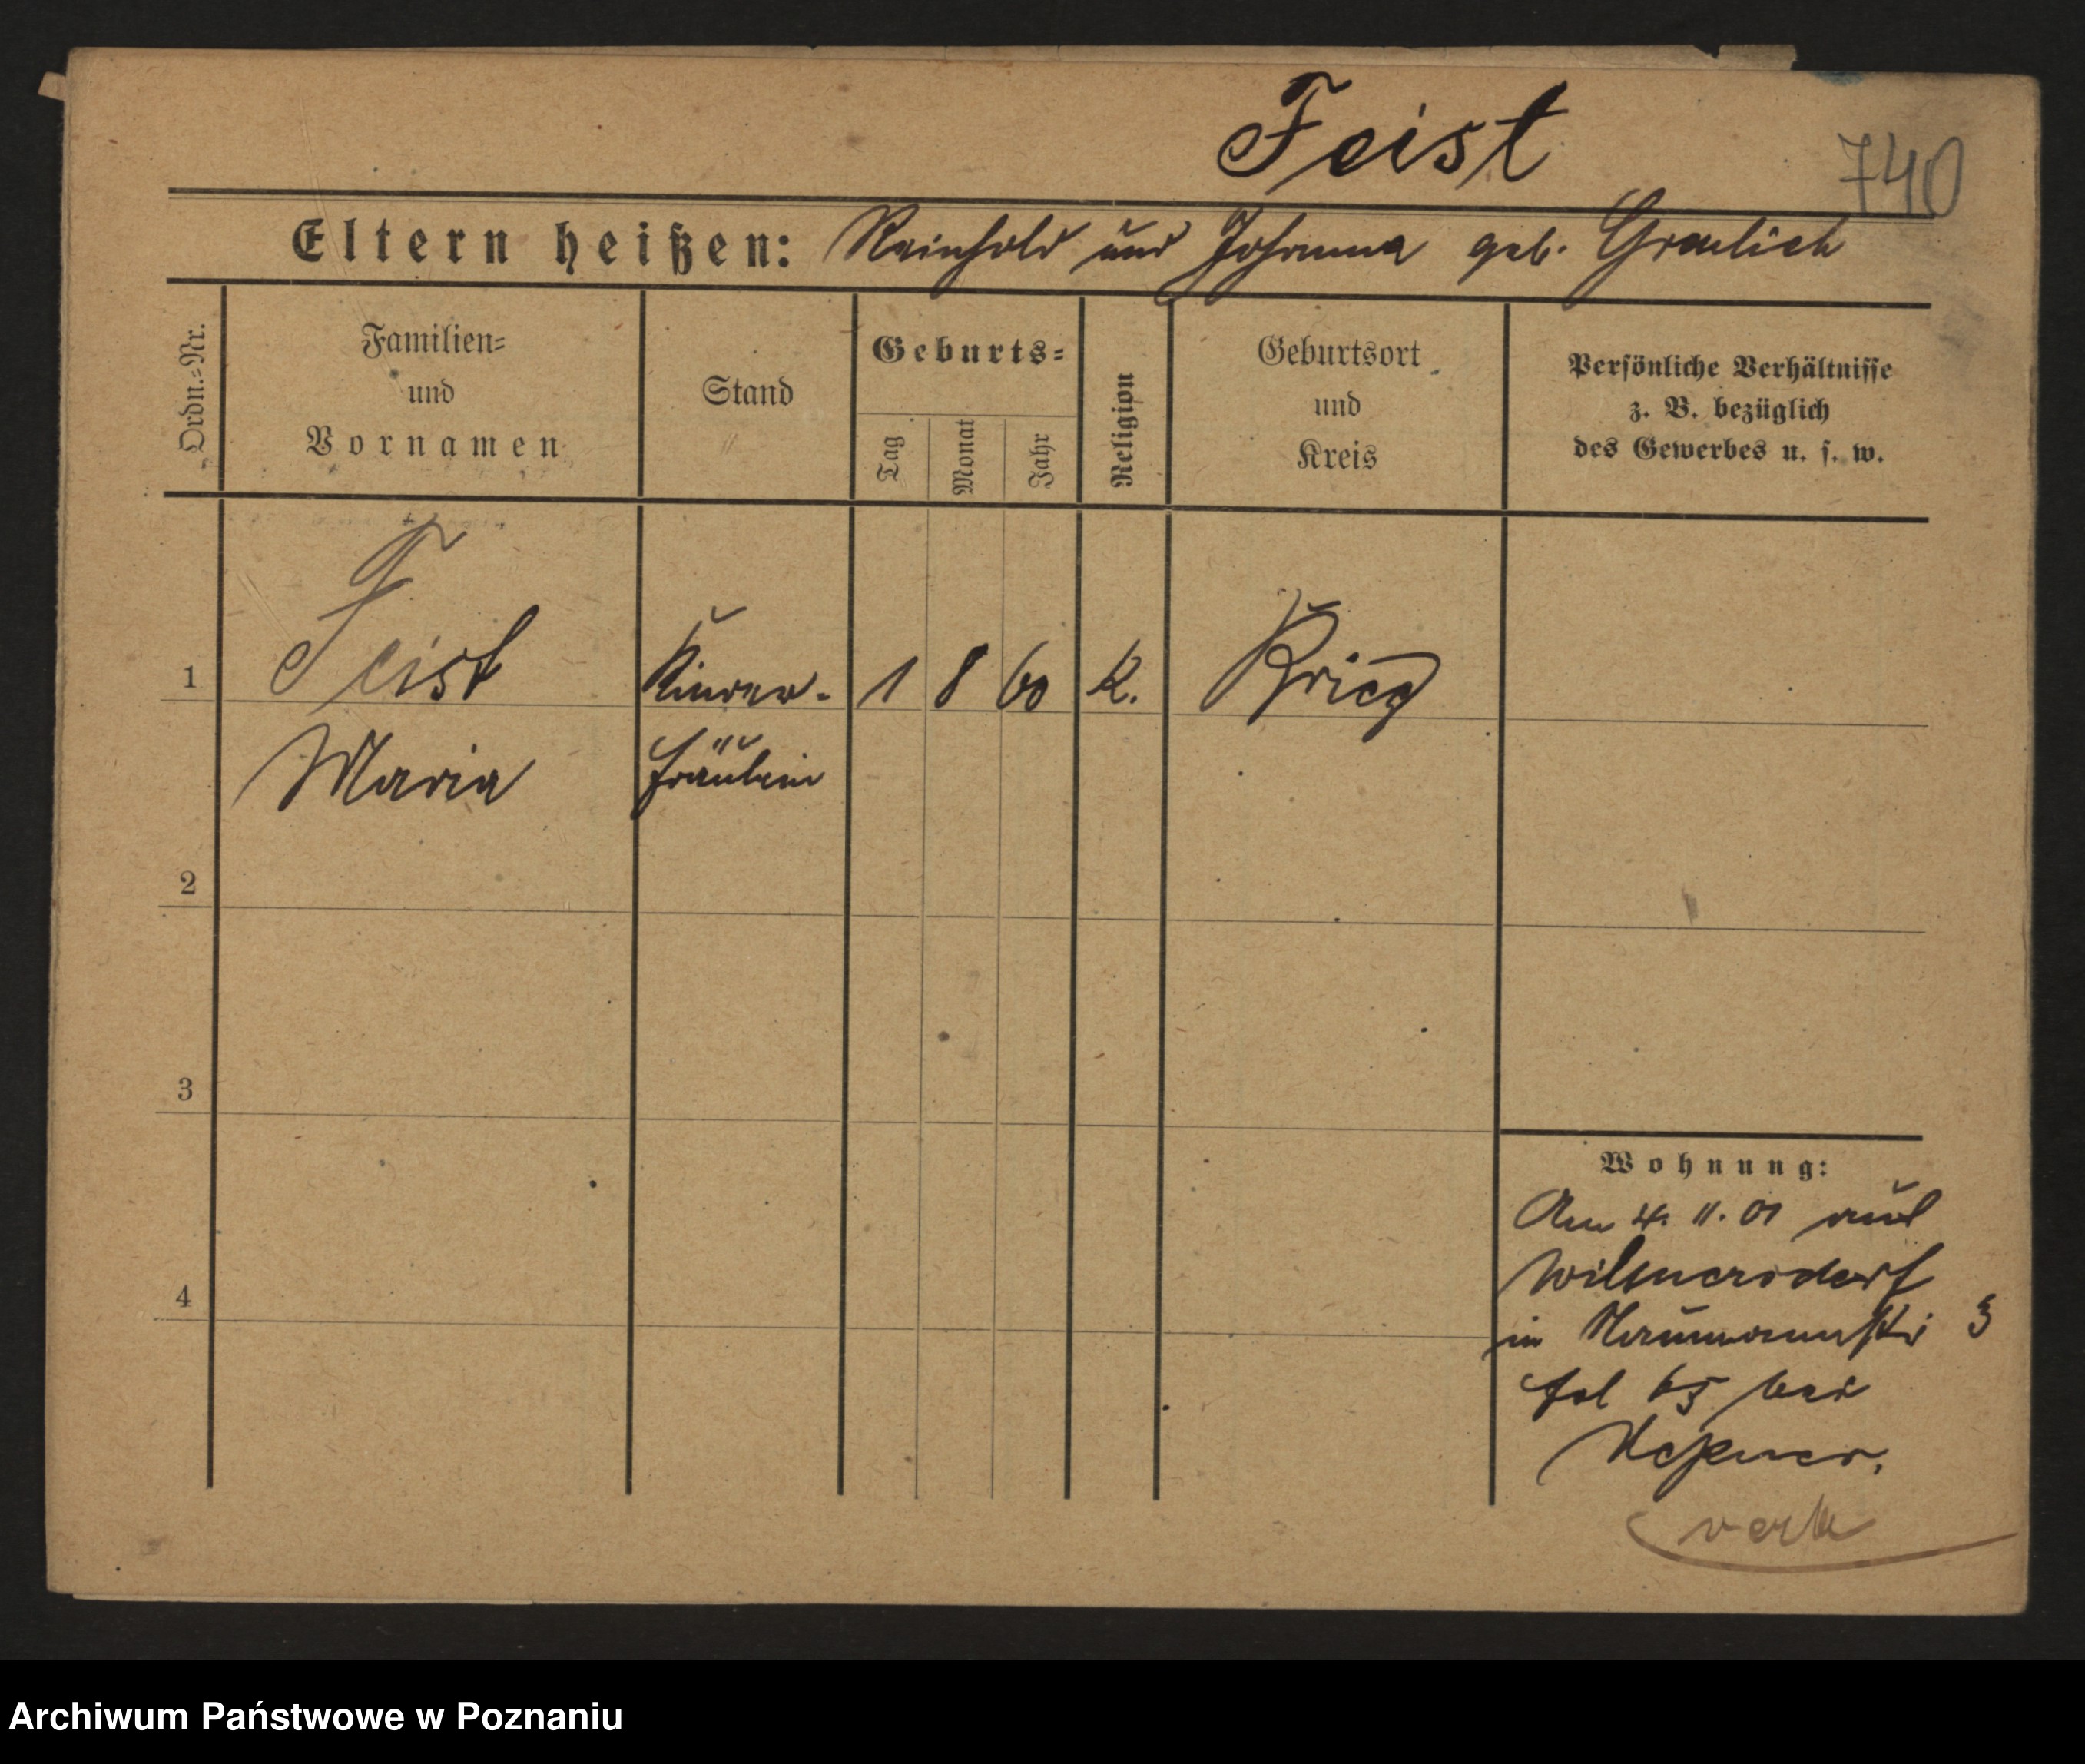 Feist
740
Eltern heißen: Reinhold und Johanna geb. Graulich
Ordn.=Nr.
Familien=
und
Vornamen
Stand
Geburts=
Tag
Monat
Jahr
Religion
Geburtsort
und
Kreis
Persönliche Verhältnisse
z. B. bezüglich
des Gewerbes u. s. w.
1 Feist Kinder- 1 8 60 K. Brieg
Maria fräulein
2
3
4
Wohnung:
Am 4. 11. 01 aus
Wilmersdorf
in Naumannstr 3
bei
Archiwum Państwowe w Poznaniu